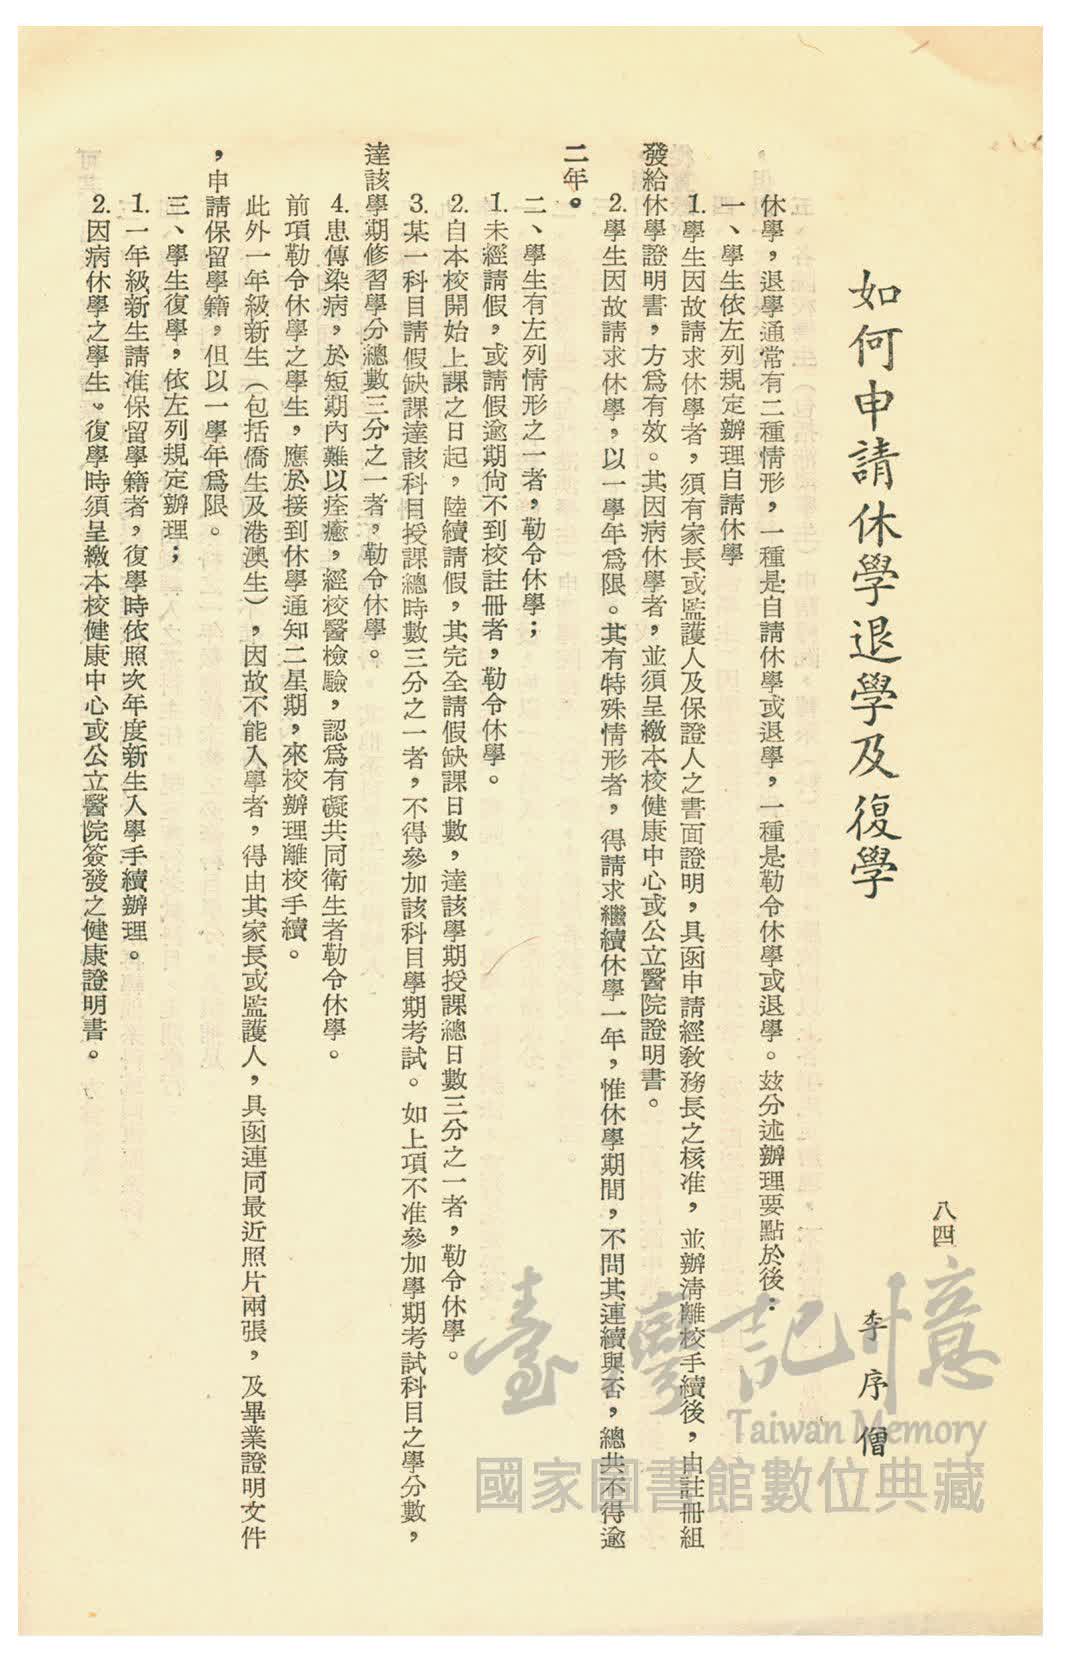 八四
如何申請休學退學及復學
李序僧
休學，退學通常有二種情形，一種是自請休學或退學，一種是勒令休學或退學。玆分述辦理要點於後：
一、學生依左列規定辦理自請休學
1.學生因故請求休學者，須有家長或監護人及保證人之書面證明，具函申請經敎務長之核准，並辦淸離校手續後，由註冊組
發給休學證明書，方爲有效。其因病休學者，並須呈繳本校健康中心或公立醫院證明書。
2.學生因故請求休學，以一學年爲限。其有特殊情形者，得請求繼續休學一年，惟休學期間，不問其連續與否，總共不得逾
二年。
二、學生有左列情形之一者，勒令休學；
1.未經請假，或請假逾期尙不到校註冊者，勒令休學。
2.自本校開始上課之日起，陸續請假，其完全請假缺課日數，達該學期授課總日數三分之一者，勒令休學。
3.某一科目請假缺課達該科目授課總時數三分之一者，不得參加該科目學期考試。如上項不准參加學期考試科目之學分數，
達該學期修習學分總數三分之一者，勒令休學。
4.患傳染病，於短期內難以痊癒，經校醫檢驗，認爲有礙共同衞生者勒令休學。
前項勒令休學之學生，應於接到休學通知二星期，來校辦理離校手續。
此外一年級新生（包括僑生及港澳生），因故不能入學者，得由其家長或監護人，具函連同最近照片兩張，及畢業證明文件
，申請保留學籍，但以一學年爲限。
三、學生復學，依左列規定辦理；
1.一年級新生請准保留學籍者，復學時依照次年度新生入學手續辦理。
2.因病休學之學生。復學時須呈繳本校健康中心或公立醫院簽發之健康證明書。
臺灣記憶
Taiwan Memory
國家圖書館數位典藏